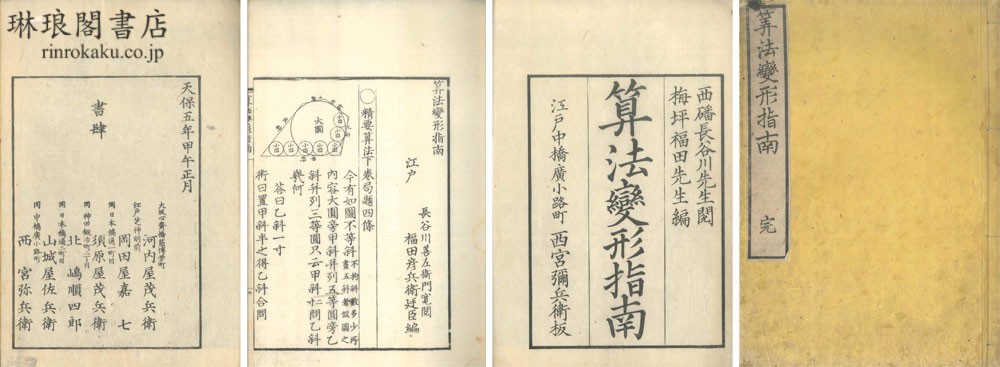 琳琅閣書店
rinrokaku.co.jp
天保五年甲午正月
書肆
大坂心斎橋筋博労町 河内屋茂兵衛
江戸芝神明前 岡田屋嘉七
同日本橋通一町目 須原屋茂兵衛
同神田鍛冶町二丁目 北嶋順四郎
同日本橋通二町目 山城屋佐兵衛
同中橋廣小路町 西宮弥兵衛
算法變形指南
長谷川善左衛門寛閲
江戸
福田彦兵衛廷臣編
〇精要算法下巻局題四條
大圓
小円
小円
小円
小円
小円
小円
小円
今有如圖不等斜
不拘斜數多少所
畫五斜者假圖之
内容大圓旁甲斜并列五等圓旁乙
斜并列三等圓只云甲斜二寸問乙斜
幾何
答曰乙斜一寸
術曰置甲斜半之得乙斜合問
西磻長谷川先生閲
梅坪福田先生編
算法變形指南
江戸中橋廣小路町 西宮彌兵衛板
算法變形指南 完